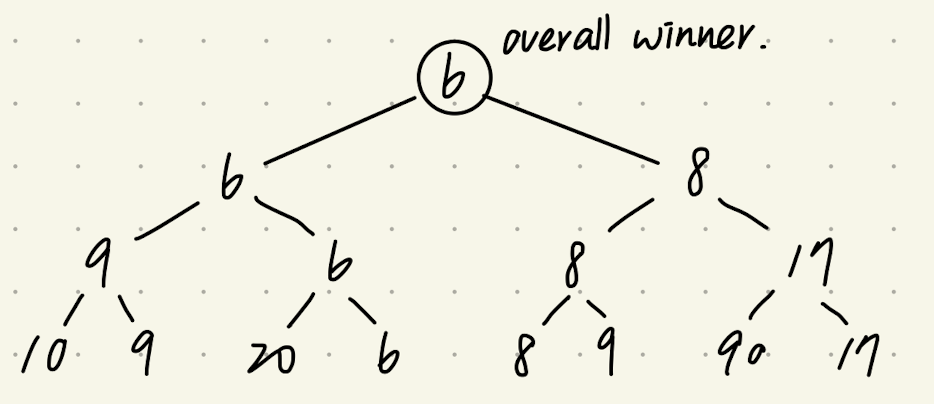 overall winner.
6
6 8
9 6 8 17
10 9 20 6 8 9 90 17